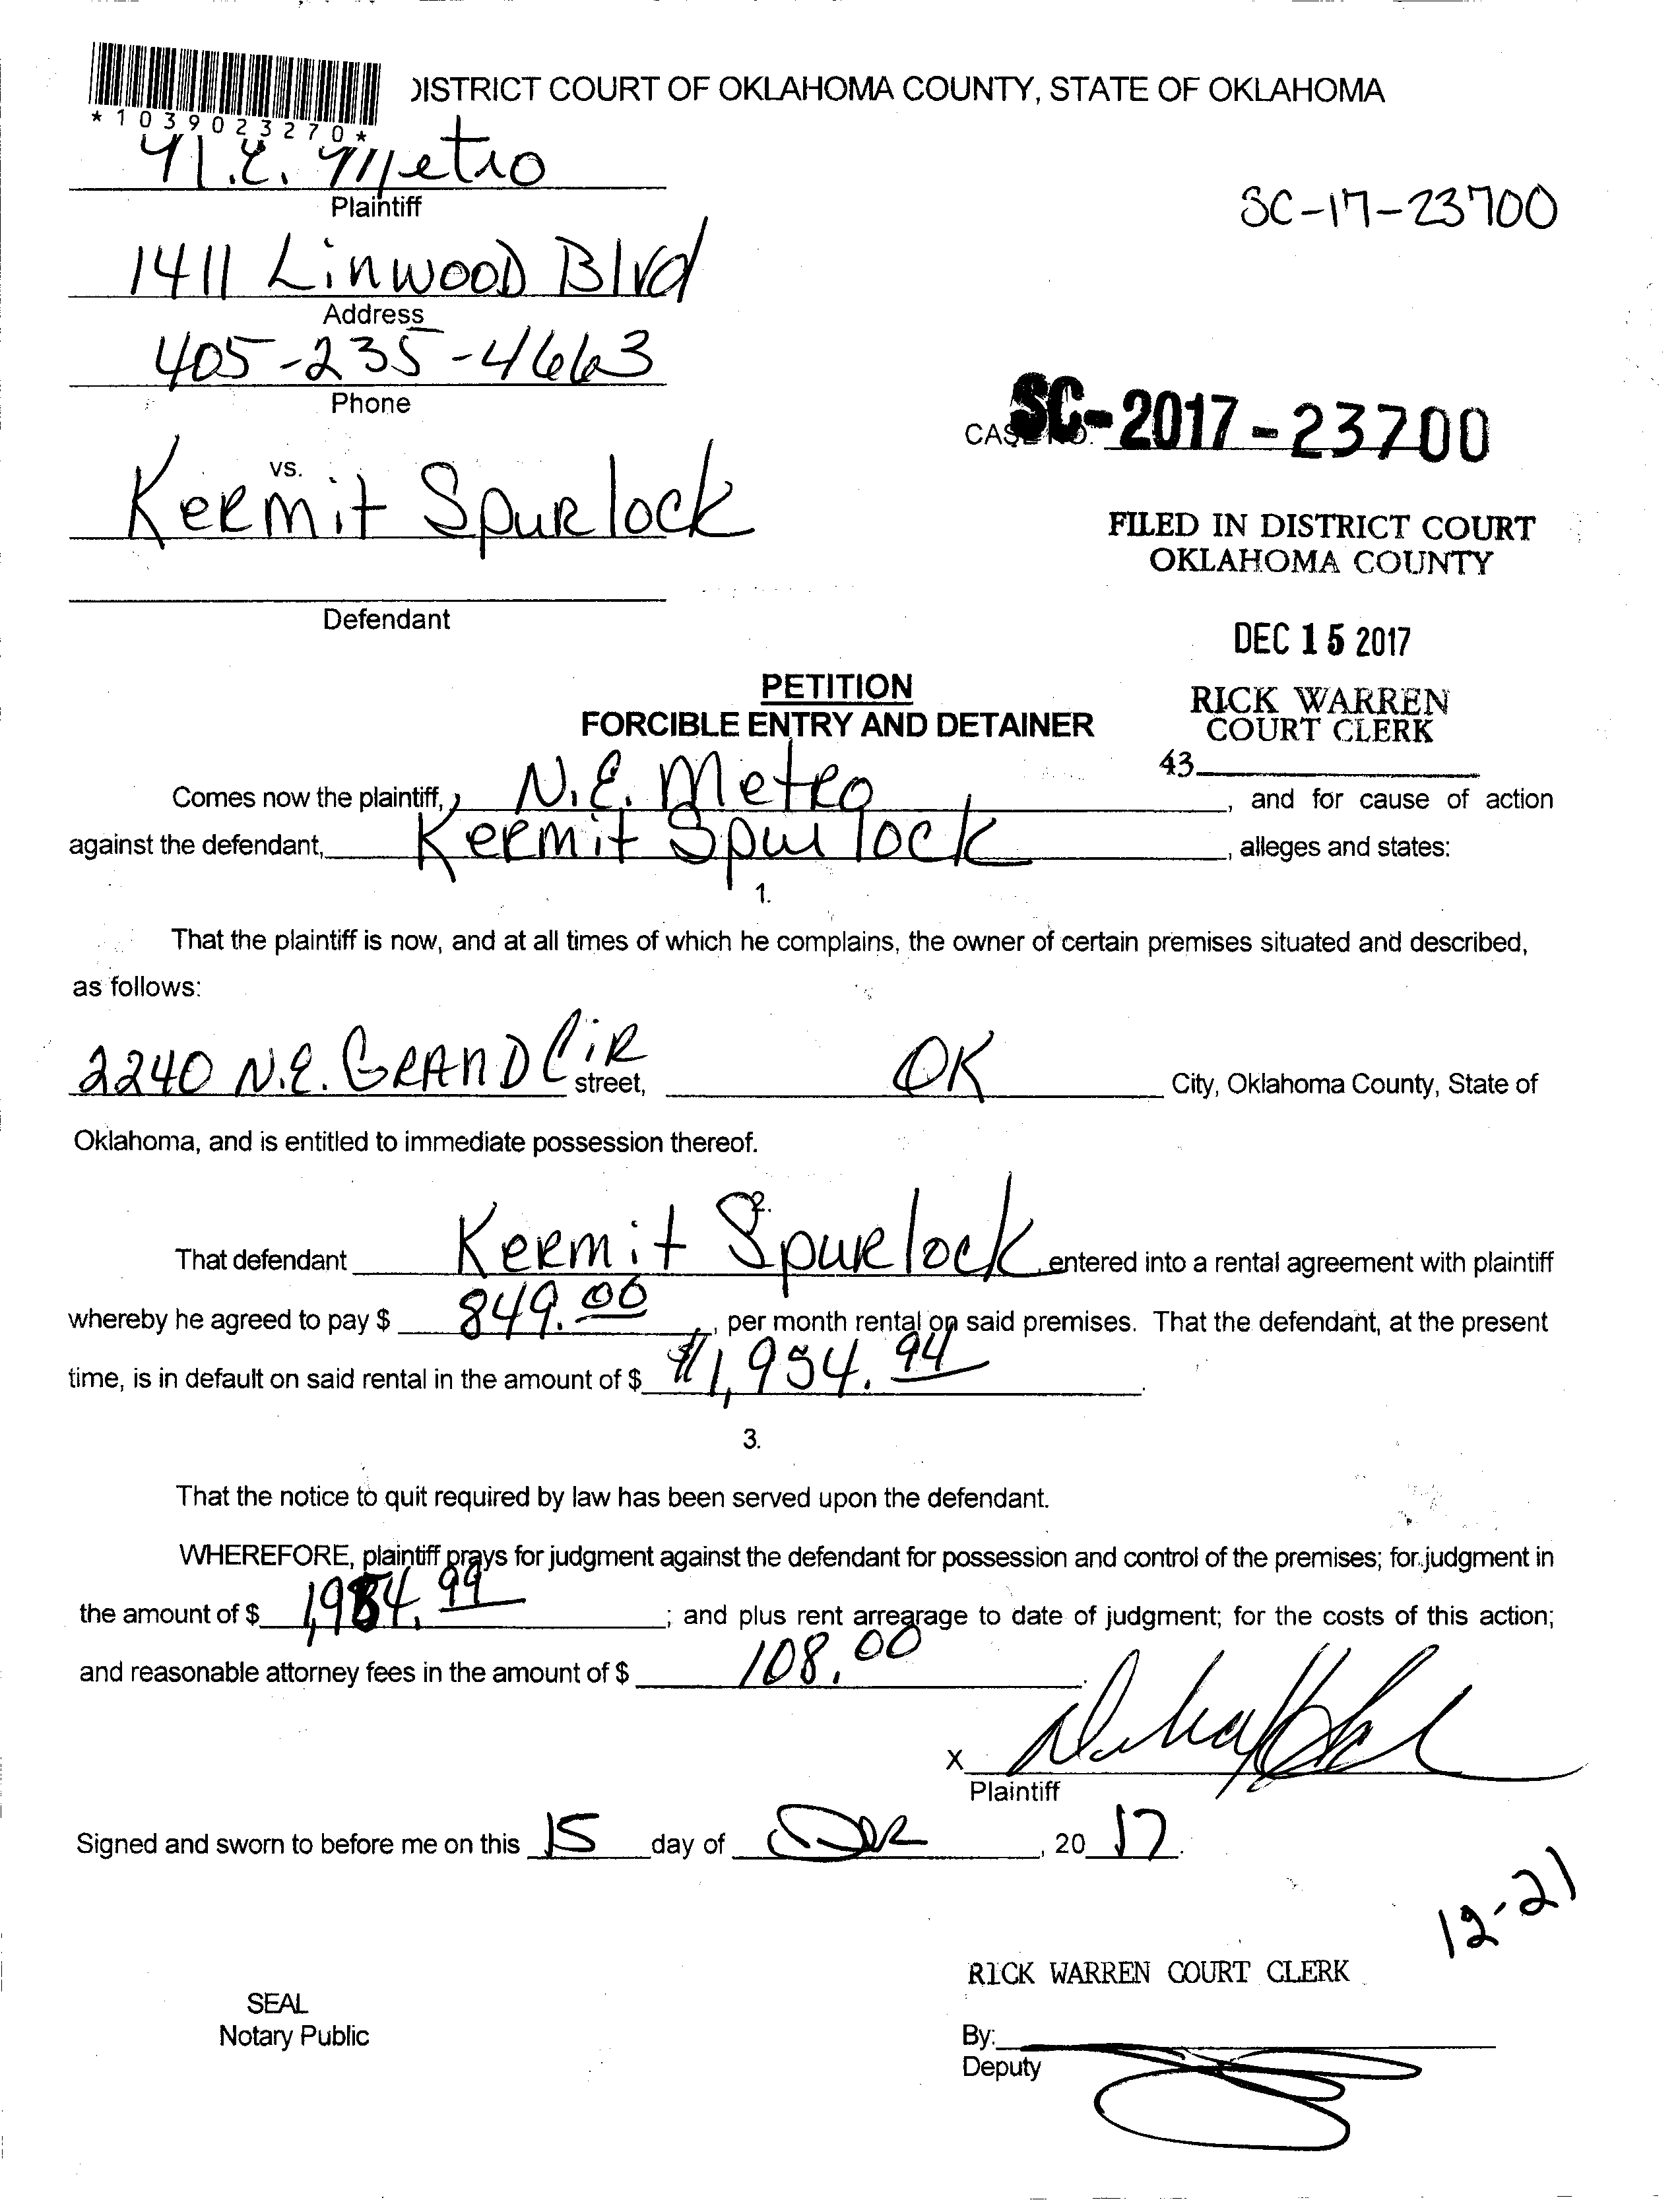 DISTRICT COURT OF OKLAHOMA COUNTY, STATE OF OKLAHOMA
*1039023270*
N.E. Metro
Plaintiff
SC-17-23700
1411 Linwood Blvd
Address
405-235-4663
Phone
CASE NO. SC-2017-23700
vs.
Kermit Spurlock
FILED IN DISTRICT COURT
OKLAHOMA COUNTY
Defendant
DEC 15 2017
PETITION
RICK WARREN
FORCIBLE ENTRY AND DETAINER
COURT CLERK
43
Comes now the plaintiff, N.E. Metro, and for cause of action
against the defendant, Kermit Spurlock, alleges and states:
1.
That the plaintiff is now, and at all times of which he complains, the owner of certain premises situated and described,
as follows:
2240 N.E. GRAND CiR street, OK City, Oklahoma County, State of
Oklahoma, and is entitled to immediate possession thereof.
2.
That defendant Kermit Spurlock, entered into a rental agreement with plaintiff
whereby he agreed to pay $ 849.00, per month rental on said premises. That the defendant, at the present
time, is in default on said rental in the amount of $ $1,954.94.
3.
That the notice to quit required by law has been served upon the defendant.
WHEREFORE, plaintiff prays for judgment against the defendant for possession and control of the premises; for judgment in
the amount of $ ; and plus rent arrearage to date of judgment; for the costs of this action;
and reasonable attorney fees in the amount of $ 108.00.
X
Plaintiff
Signed and sworn to before me on this 15 day of Dec, 20 17.
12-21
RICK WARREN COURT CLERK
SEAL
Notary Public
By:
Deputy